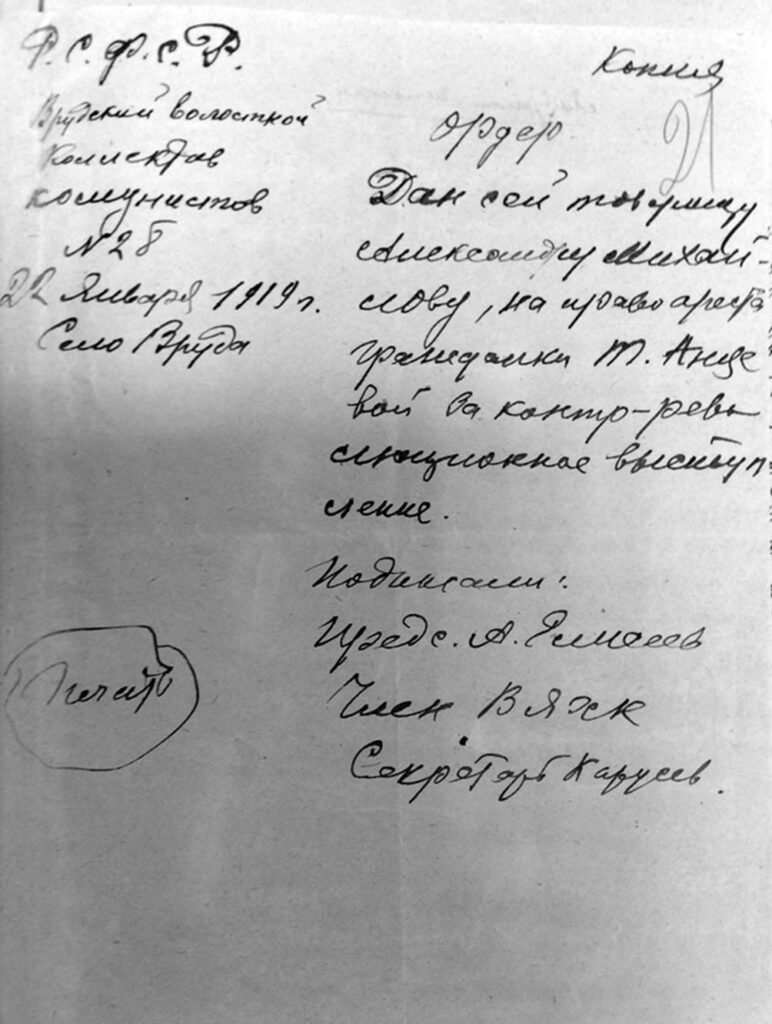 Р.С.Ф.С.Р.
Врудский волосткой
Коллектив
комунистов
№ 28
22 Января 1919 г.
Село Вруда
Копия
21
Ордер.
Дан сей товарищу
Александру Михай-
лову, на право ареста
гражданки Т. Анце
вой За контр-рево
люционное выступ
ление.
Подписали:
Предс. А.
Член Вяхк
Секретарь Карусев.
Печать